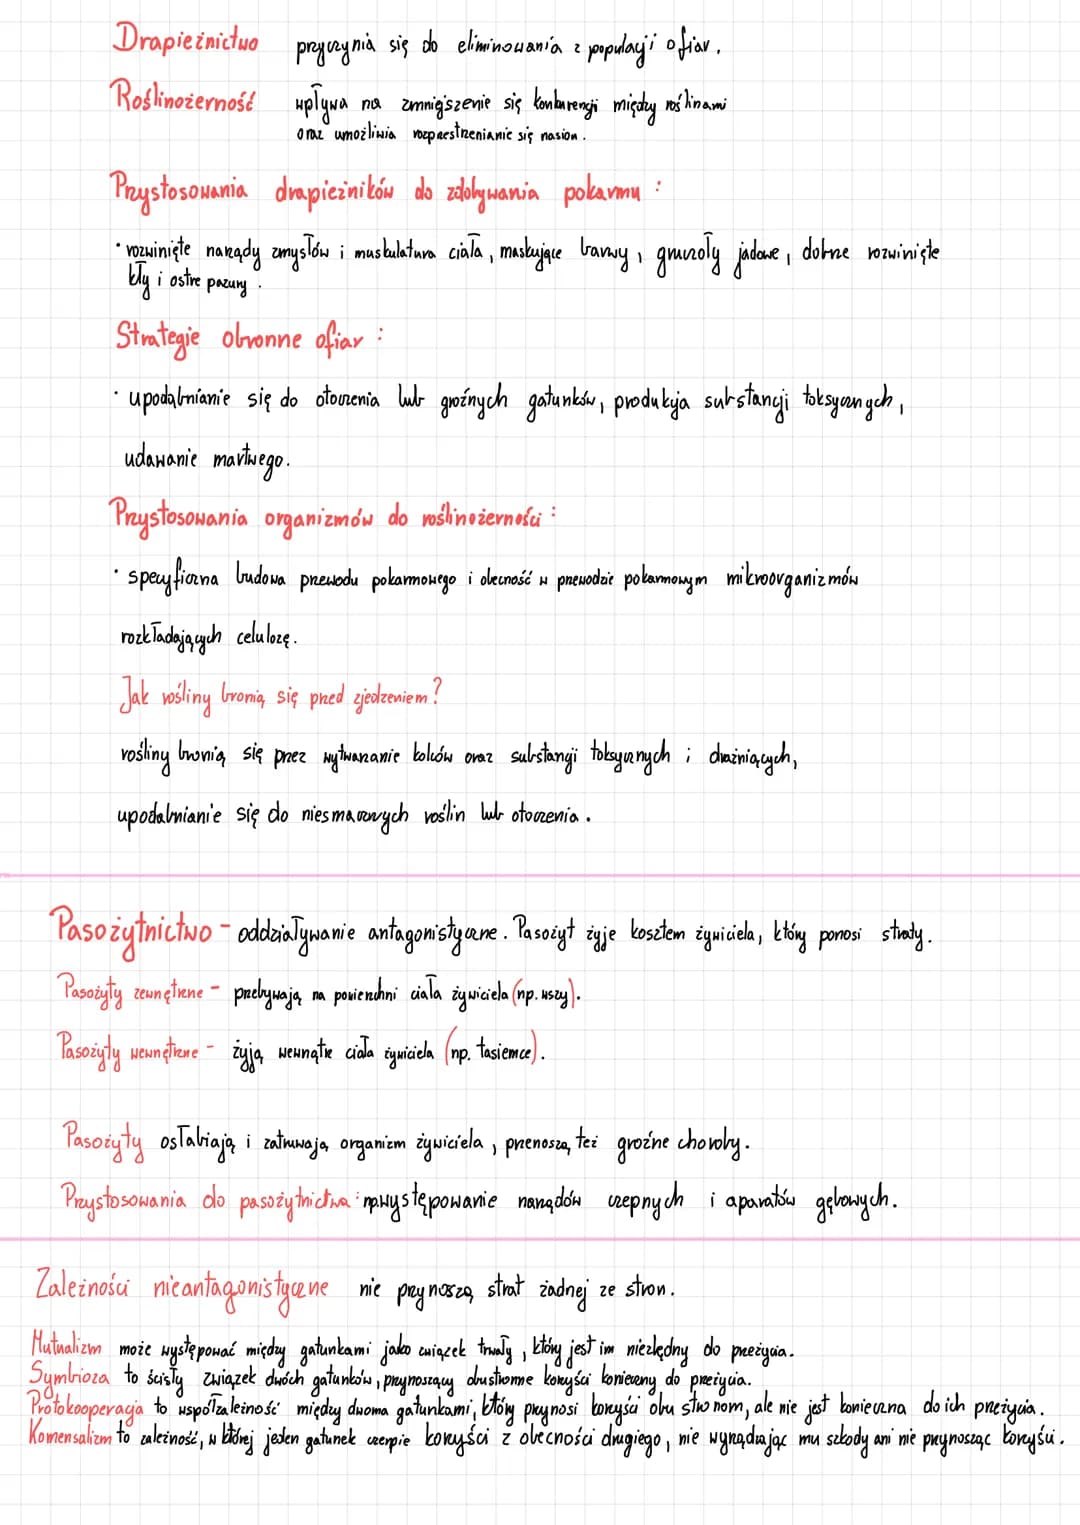 Drapieżnictwo przyczynia się do eliminowania z populacji ofiar.
Roślinożerność wpływa na zmniejszenie się konkurencji między roślinami
oraz umożliwia rozprzestrzenianie się nasion.
Przystosowania drapieżników do zdobywania pokarmu :
· rozwinięte narządy zmysłów i muskulatura ciała, maskujące barwy, gruczoły jadowe, dobrze rozwinięte
kły i ostre pazury.
Strategie obronne ofiar :
· upodabnianie się do otoczenia lub groźnych gatunków, produkcja substancji toksycznych,
udawanie martwego.
Przystosowania organizmów do roślinożerności :
· specyficzna budowa przewodu pokarmowego i obecność w przewodzie pokarmowym mikroorganizmów
rozkładających celulozę.
Jak rośliny bronią się przed zjedzeniem?
rośliny bronią się przez wytwarzanie kolców oraz substancji toksycznych i drażniących,
upodabnianie się do niesmacznych roślin lub otoczenia.
Pasożytnictwo - oddziaływanie antagonistyczne. Pasożyt żyje kosztem żywiciela, który ponosi straty.
Pasożyty zewnętrzne - przebywają na powierzchni ciała żywiciela (np. wszy).
Pasożyty wewnętrzne - żyją wewnątrz ciała żywiciela (np. tasiemce).
Pasożyty osłabiają i zatruwają organizm żywiciela, przenoszą też groźne choroby.
Przystosowania do pasożytnictwa : np. występowanie narządów czepnych i aparatów gębowych.
Zależności nieantagonistyczne nie przynoszą strat żadnej ze stron.
Mutualizm może występować między gatunkami jako związek trwały, który jest im niezbędny do przeżycia.
Symbioza to ścisły związek dwóch gatunków, przynoszący obustronne korzyści konieczny do przeżycia.
Protokooperacja to współzależność między dwoma gatunkami, który przynosi korzyści obu stronom, ale nie jest konieczna do ich przeżycia.
Komensalizm to zależność, w której jeden gatunek czerpie korzyści z obecności drugiego, nie wyrządzając mu szkody ani nie przynosząc korzyści.